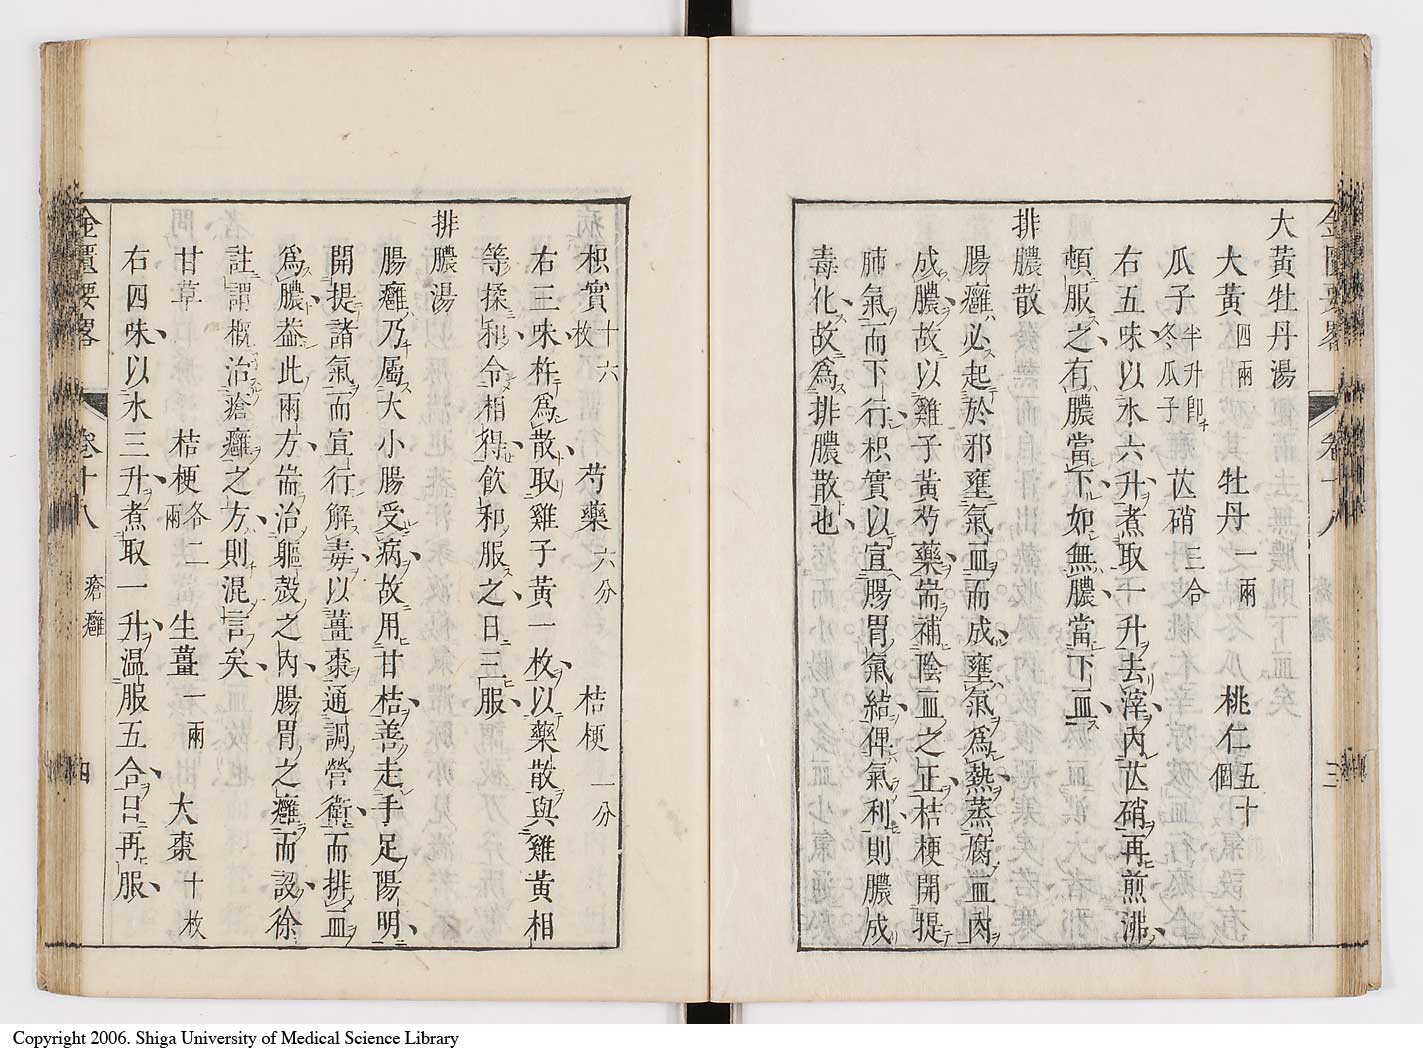 大黃牡丹湯
大黃四兩 牡丹一兩 桃仁五十個
瓜子半升卽冬瓜子 芒硝三合
右五味以水六升煮取一升去滓內芒硝再煎沸
頓服之有膿當下如無膿當下血
排膿散
腸癰必起於邪壅氣血而成壅氣爲熱蒸腐血肉
成膿故以雞子黃芍藥耑補陰血之正桔梗開提
肺氣而下行枳實以宜腸胃氣結俾氣利則膿成
毒化故爲排膿散也
金匱要畧 卷十八 三
枳實十六枚 芍藥六分 桔梗一分
右三味杵爲散取雞子黃一枚以藥散與雞黃相
等揉和令相得飲和服之日三服
排膿湯
腸癰乃屬大小腸受病故用甘桔善走手足陽明
開提諸氣而宣行解毒以薑棗通調營衛而排血
爲膿葢此兩方耑治軀殼之內腸胃之癰而設徐
註謂槪治瘡癰之方則混言矣
甘草 桔梗各二兩 生薑一兩 大棗十枚
右四味以水三升煮取一升温服五合日再服
金匱要畧 卷十八 瘡癰 四
Copyright 2006. Shiga University of Medical Science Library